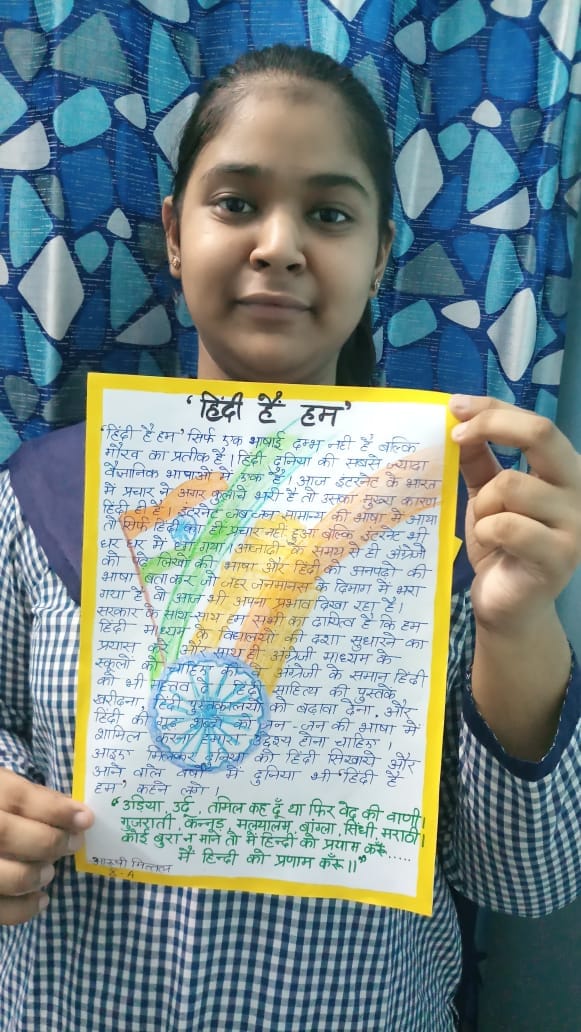 'हिंदी हैं हम'
'हिंदी हैं हम' सिर्फ एक भाषाई दम्भ नहीं है बल्कि
गौरव का प्रतीक है। हिंदी दुनिया की सबसे ज्यादा
वैज्ञानिक भाषाओं में एक है। आज इंटरनेट के भारत
में प्रचार ने अगर कुलाचे भरी है तो उसका मुख्य कारण
हिंदी ही है। इंटरनेट जब जन सामान्य की भाषा में आया
तो सिर्फ हिंदी का ही प्रचार नहीं हुआ बल्कि इंटरनेट भी
घर घर में छा गया। आजादी के समय से ही अंग्रेजी
को की भाषा और हिंदी को अनपढों की
भाषा बताकर जो जहर जनमानस के दिमाग में भरा
गया है वो आज भी अपना प्रभाव दिखा रहा है।
सरकार के साथ-साथ हम सभी का दायित्व है कि हम
हिंदी माध्यम के विद्यालयों की दशा सुधारने का
प्रयास करें और साथ ही अंग्रेजी माध्यम के
स्कूलों को अंग्रेजी के समान हिंदी
को भी महत्तव दें। हिंदी साहित्य की पुस्तकें
खरीदना, हिंदी पुस्तकालयों को बढ़ावा देना, और
हिंदी की को जन-जन की भाषा में
शामिल करना उद्देश्य होना चाहिए।
आइए मिलकर दुनिया को हिंदी सिखायें और
आने वाले वर्षों में दुनिया भी 'हिंदी हैं
हम' कहने लगे।
"उडिया, उर्दू, तमिल कह दूँ या फिर वेद की वाणी।
गुजराती, कन्नड़, मलयालम, बांग्ला, सिंधी, मराठी।
कोई बुरा न माने तो मैं हिन्दी को प्रयाम करूँ.....
मैं हिन्दी को प्रणाम करूँ।।"
मित्तल
X-A